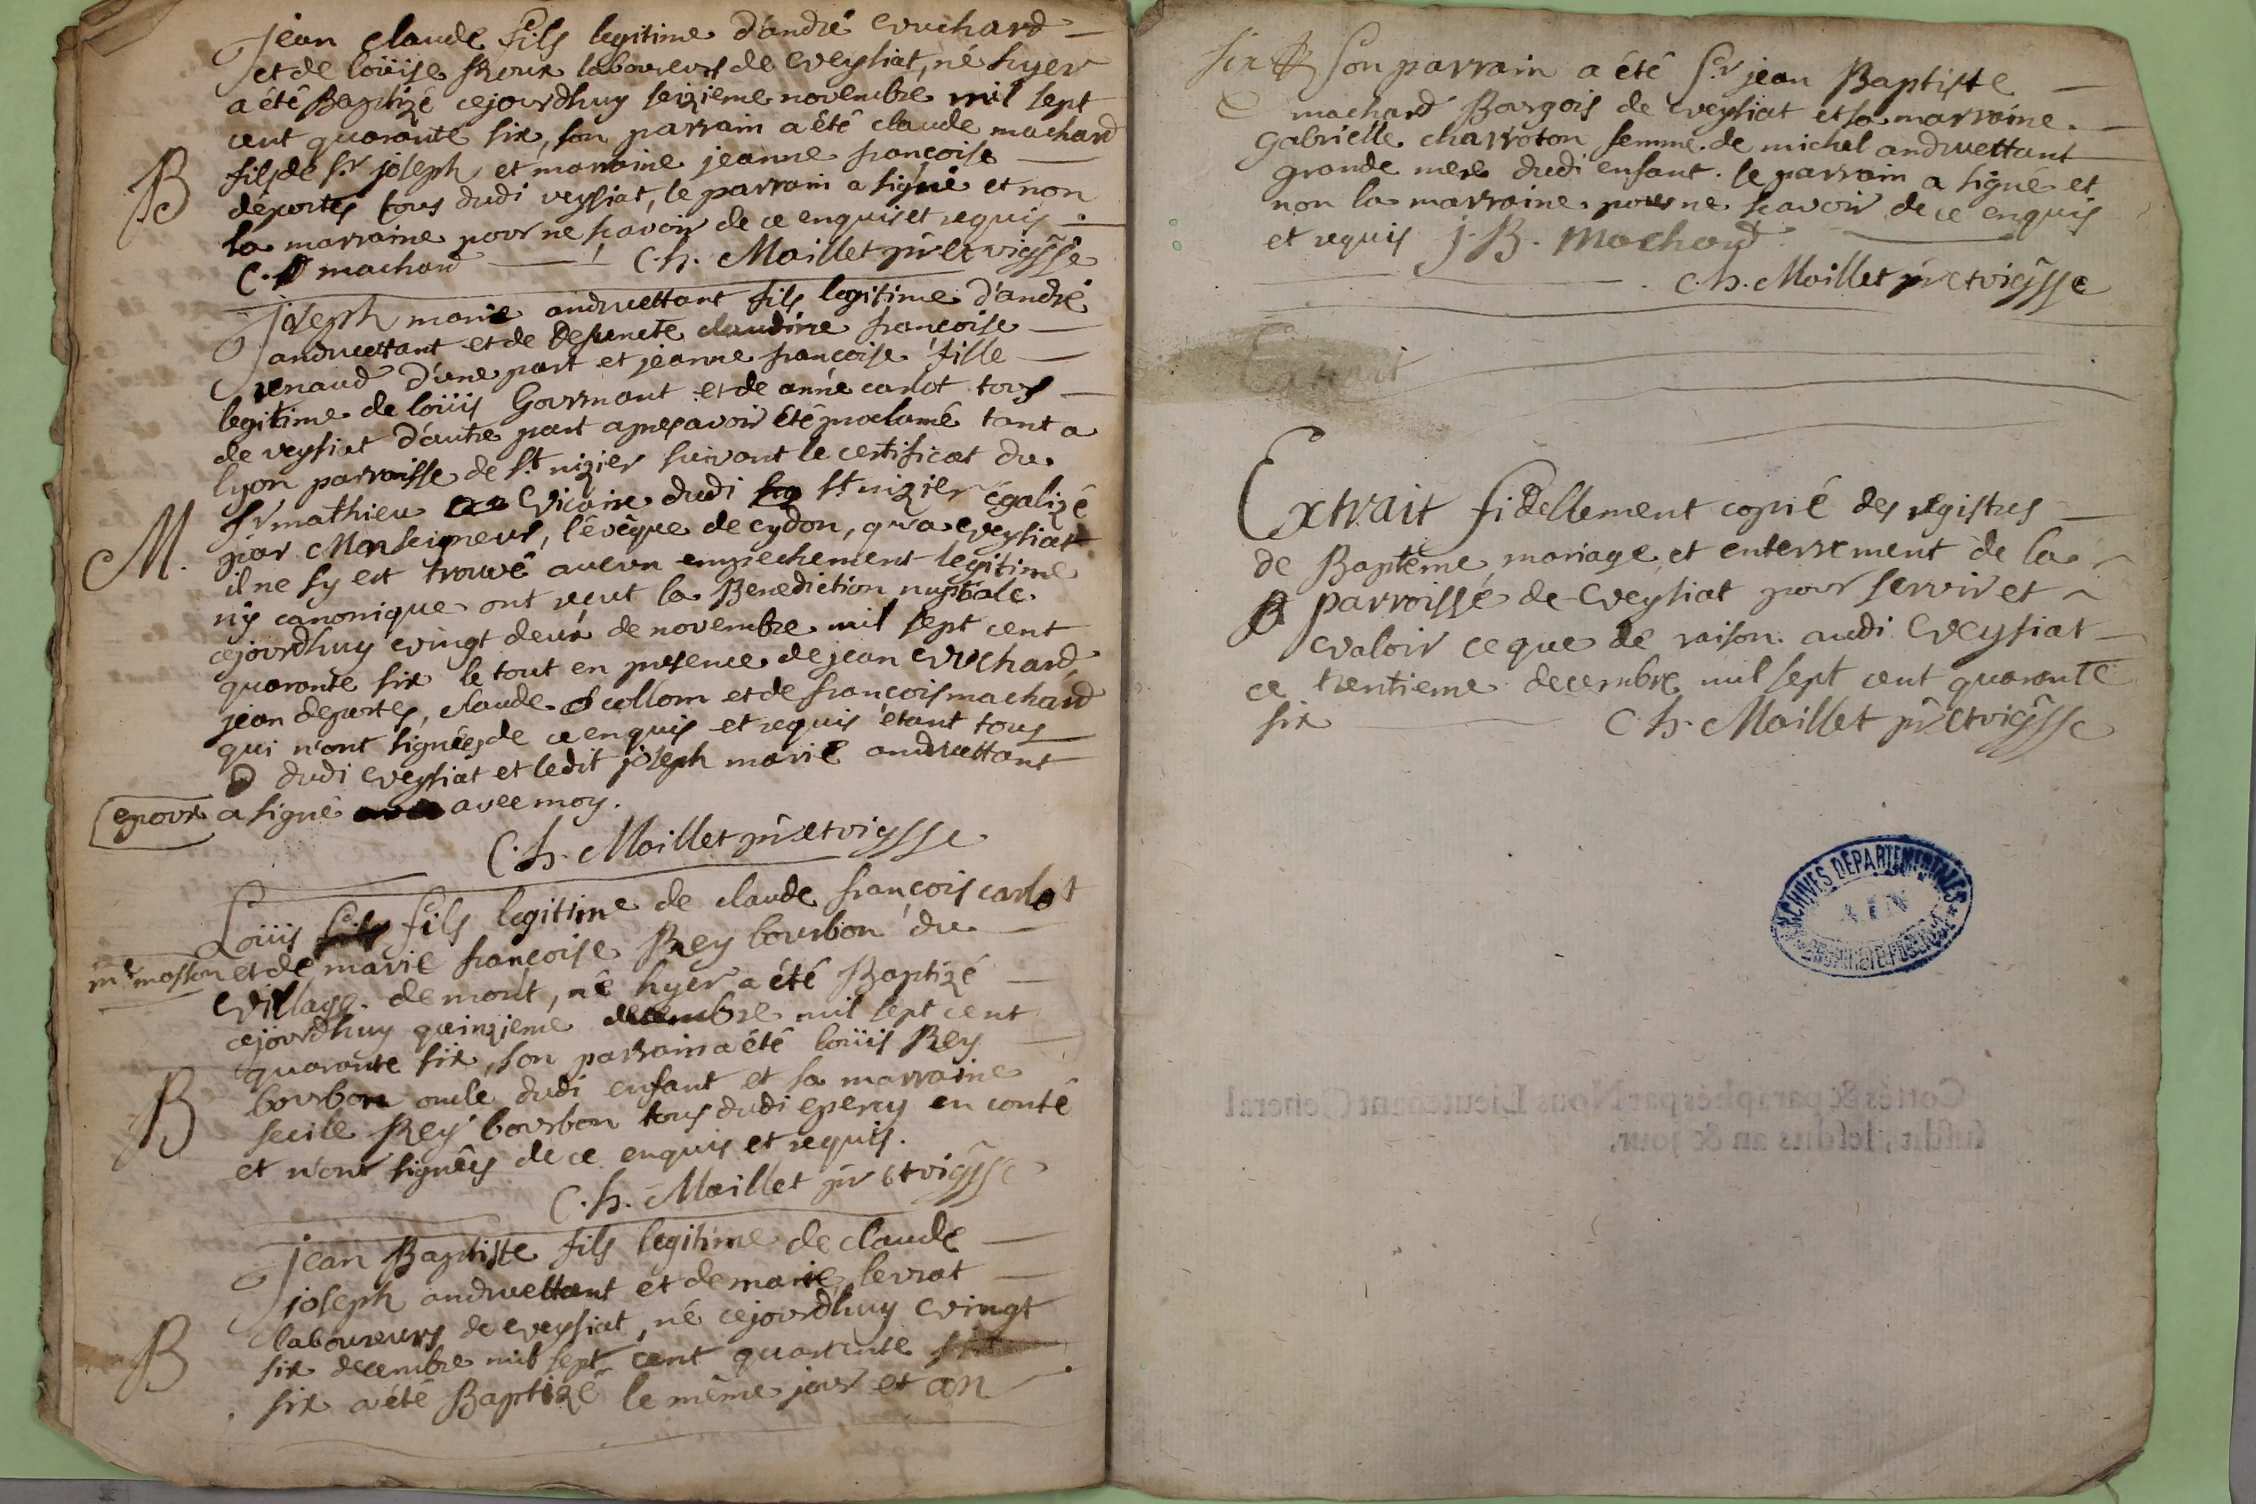 jean claude fils legitime d'andré vuchard
et de loüise Roux laboureurs de veysiat, né hyer
a été Baptizé cejourdhuy seizieme novembre mil sept
cent quarante six, son parrain a été claude machard
B
fils de Sr joseph, et marraine jeanne françoise
déportes tous dudi veysiat, le parrain a signé et non
la marraine pour ne scavoir de ce enquis et requis.
C. machard C.h. Maillet ptre et vic
joseph marie andruettant fils legitime d'andré
andruettant et de Defuncte claudine françoise
renaud d'une part et jeanne françoise fille
legitime de loüis Gourmant et de anne carlot tous
de veysiat d'autre part apres avoir été proclamé tant a
lyon parroisse de St nizier suivant le certificat du
M.
Sr mathieu vicaire dudi St nizier égalizé
par Monseigneur, l'évêque de cydon, qu'a veysiat
il ne sy est trouvé aucun empechement legitime
ny canonique ont reçut la Benediction nuptiale
cejourdhuy vingt deux de novembre mil sept cent
quarante six le tout en presence de jean vuchard,
jean deportes, claude collom et de françois machard
qui n'ont signées de ce enquis et requis étant tous
dudi veysiat et ledit joseph marie andruettant
epoux a signé avec moy.
C.h. Maillet ptre et vic
Loüis fils fils legitime de claude françois carlot
et de marie françoise Rey bourbon du
village de mont, né hyer a été Baptizé
cejourdhuy quinzieme decembre mil sept cent
quarante six, son parrain a été loüis Rey
B
bourbon oncle dudi enfant et sa marraine
secile Rey bourbon tous dudi epercy en conté
et n'ont signéés de ce enquis et requis.
C.h. Maillet ptre et vic
jean Baptiste fils legitime de claude
joseph andruettant et de marie levrat
B
laboureurs de veysiat, né cejourdhuy vingt
six decembre mil sept cent quarante
six a été Baptizé le même jour et an
six Son parrain a été Sr jean Baptiste
machard Bourgois de veysiat et sa marraine
Gabrielle charroton femme de michel andruettant
grande mere dudi enfant. le parrain a signé et
non la marraine pour ne scavoir de ce enquis
et requis J.B. Machard
C.h. Maillet ptre et vic
Extrait
Extrait fidellement copié des registres
de Baptéme mariage et enterrement de la
parroisse de veysiat pour servir et
valoir ce que de raison audi veysiat
ce trentieme decembre mil sept cent quarante
six C.h. Maillet ptre et vic
ARCHIVES DÉPARTEMENTALES
AIN
Cottés & paraphés par Nous Lieutenant General
susdit, lesdits an & jour.